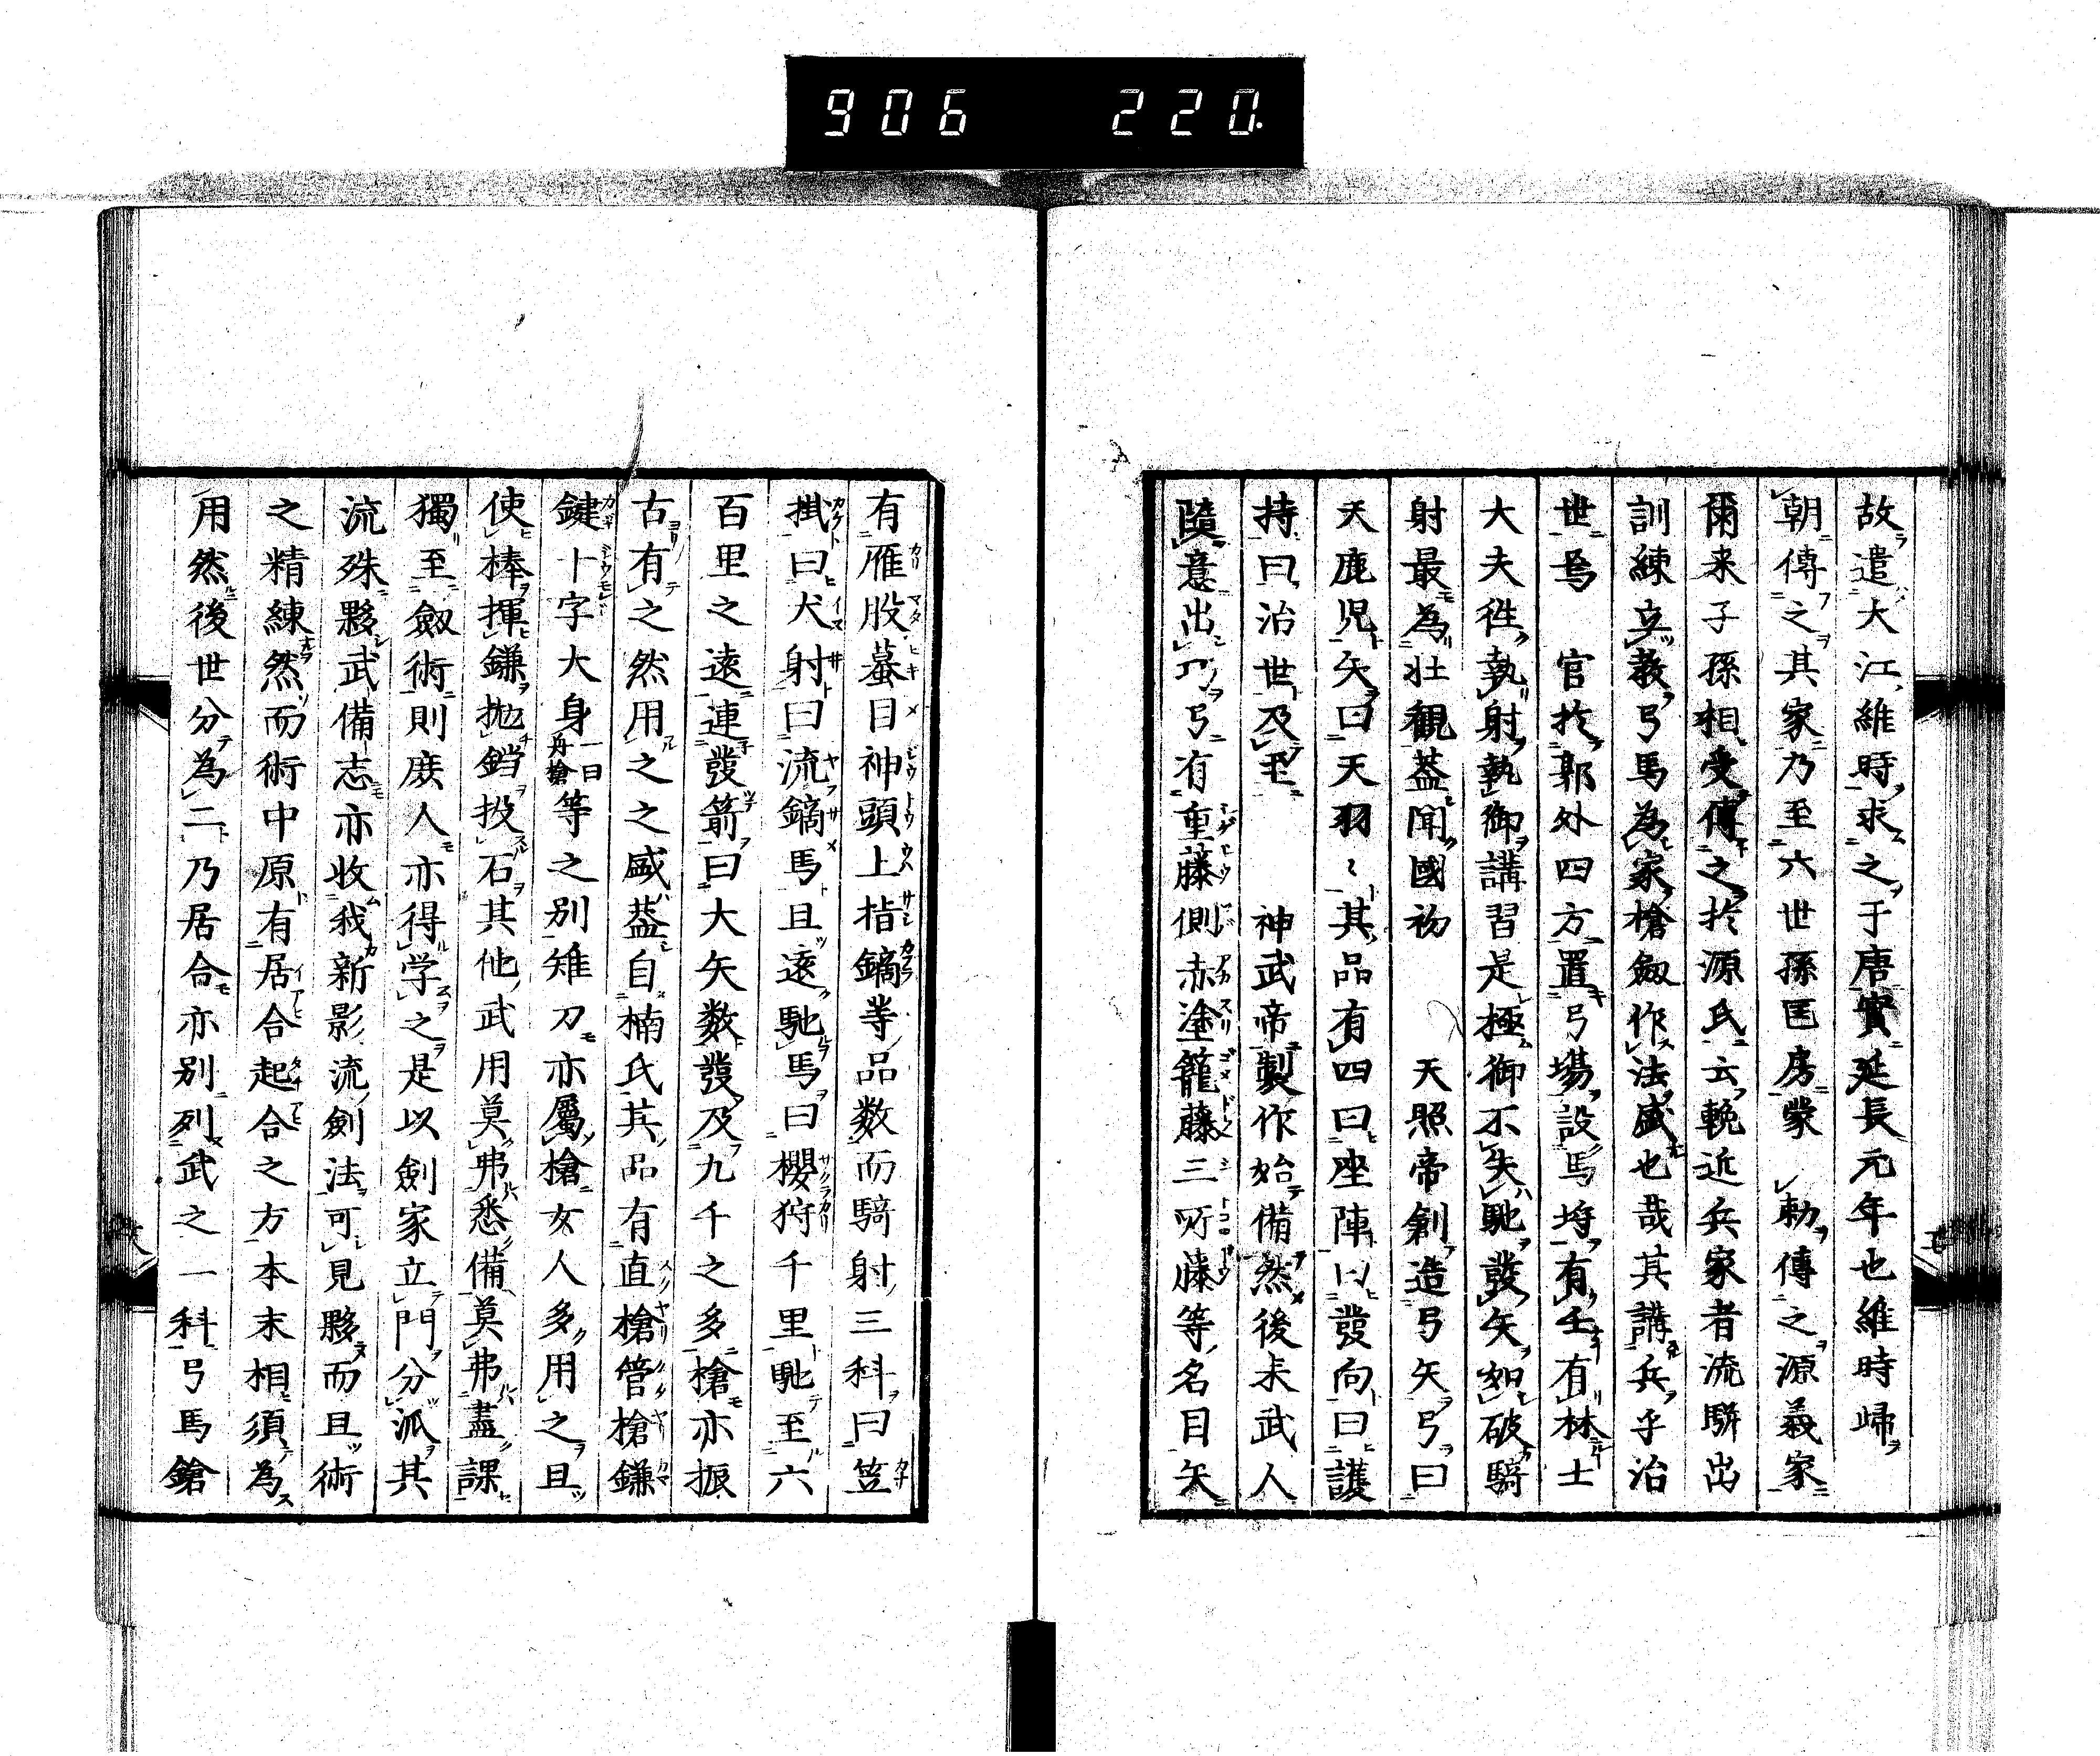 906 220.
故遣大江維時求之于唐實延長元年也維時歸
朝傳之其家乃至六世孫匡房蒙 勅傳之源義家
爾来子孫相受傳之於源氏云輓近兵家者流駢出
訓練立教弓馬為家槍劔作法盛也哉其講兵乎治
世焉 官於郭外四方置弓場設馬埒有壬有林士
大夫徃執射執御講習是極御不失馳發矢如破騎
射最為壮観蓋聞國初 天照帝創造弓矢弓曰
天鹿児矢曰天羽〻其品有四曰座陣曰發向曰護
持曰治世及至 神武帝製作始備然後来武人
隨意出巧弓有重藤側赤塗籠藤三所藤等名目矢
有雁股蟇目神頭上指鏑等品数而騎射三科曰笠
掛曰犬射曰流鏑馬且遠馳馬曰櫻狩千里馳至六
百里之遠連發箭曰大矢数發及九千之多槍亦振
古有之然用之之盛蓋自楠氏其品有直槍管槍鎌
鍵十字大身一曰舟槍等之别雉刀亦屬槍女人多用之且
使棒揮鎌抛鎲投石其他武用莫弗悉備莫弗盡課
獨至劔術則庶人亦得学之是以劍家立門分派其
流殊夥武備志亦收我新影流劍法可見夥而且術
之精練然而術中原有居合起合之方本末相須為
用然後世分為二乃居合亦别列武之一科弓馬鎗